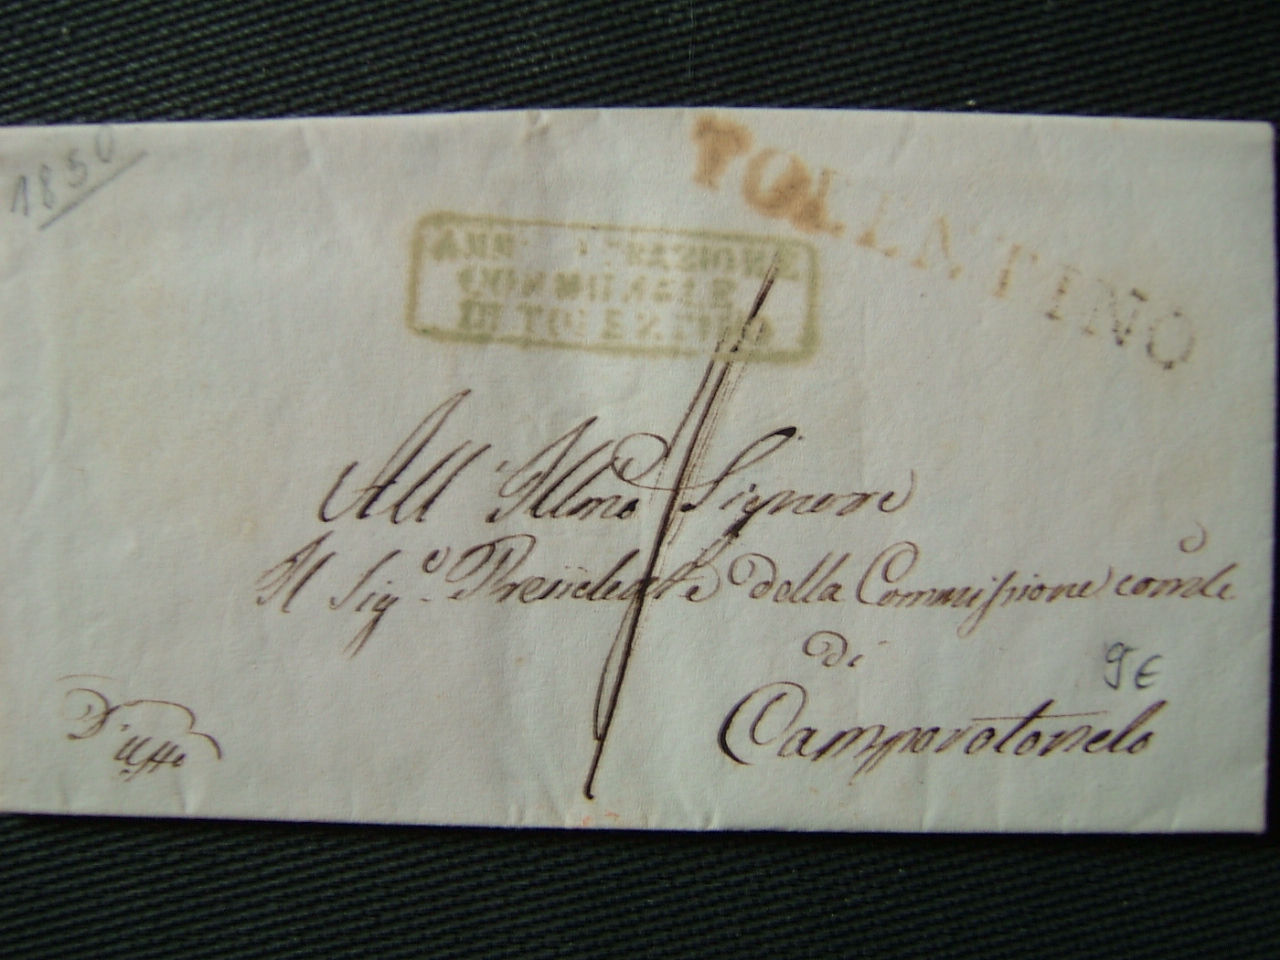 1850
TOLENTINO
AMMINISTRAZIONE
COMMUNALE
DI TOLENTINO
All' Illmo Signore
Il Sig.e Presidente della Commissione comle
di
9€
Camporotondo
D'uffo